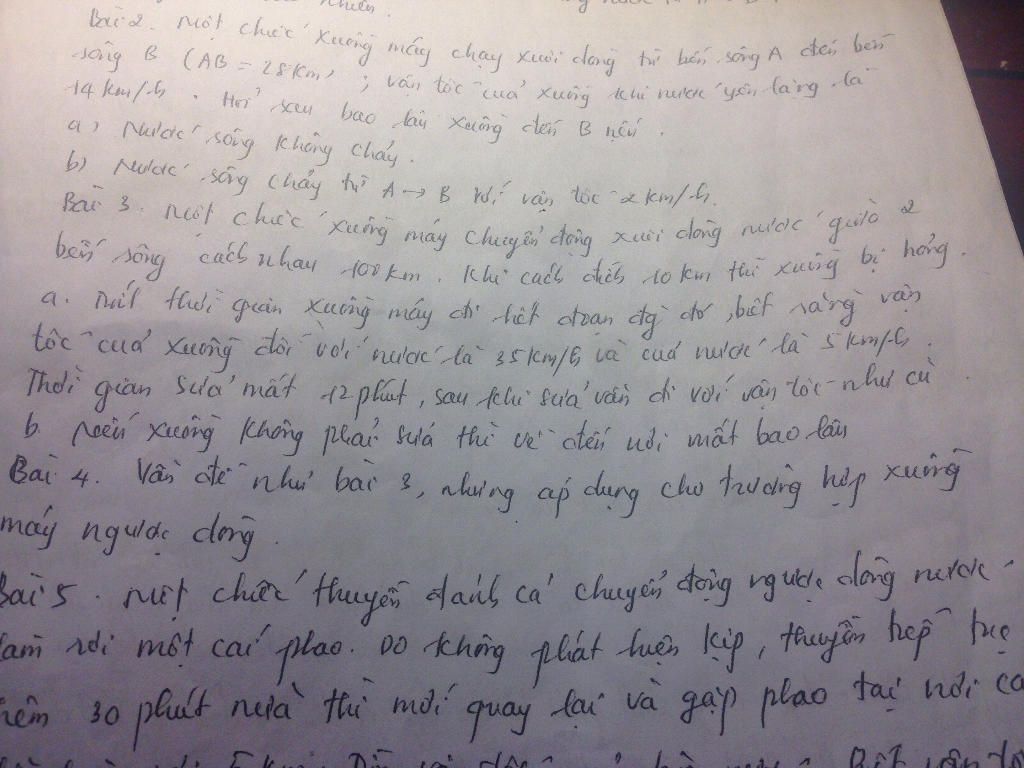 nhiên.
Bài 2. Một chiếc xuồng máy chạy xuôi dòng từ bến sông A đến bến
sông B (AB = 28km) ; vận tốc của xuồng khi nước yên lặng là
14 km/h. Hỏi sau bao lâu xuồng đến B nếu.
a) Nước sông không chảy.
b) Nước sông chảy từ A → B với vận tốc 2 km/h.
Bài 3. Một chiếc xuồng máy chuyển động xuôi dòng nước giữa 2
bến sông cách nhau 100km. Khi cách đích 10 km thì xuồng bị hỏng.
a. thời gian xuồng máy đi hết đoạn đg đó, biết rằng vận
tốc của xuồng đối với nước là 35km/h và của nước là 5km/h.
Thời gian sửa mất 12 phút, sau khi sửa vẫn đi với vận tốc như cũ
b. Nếu xuồng không phải sửa thì về đến nơi mất bao lâu
Bài 4. Vẫn đề như bài 3, nhưng áp dụng cho trường hợp xuồng
máy ngược dòng.
Bài 5. Một chiếc thuyền đánh cá chuyển động ngược dòng nước
làm rơi một cái phao. Do không phát hiện kịp, thuyền tiếp
thêm 30 phút nữa thì mới quay lại và gặp phao tại nơi